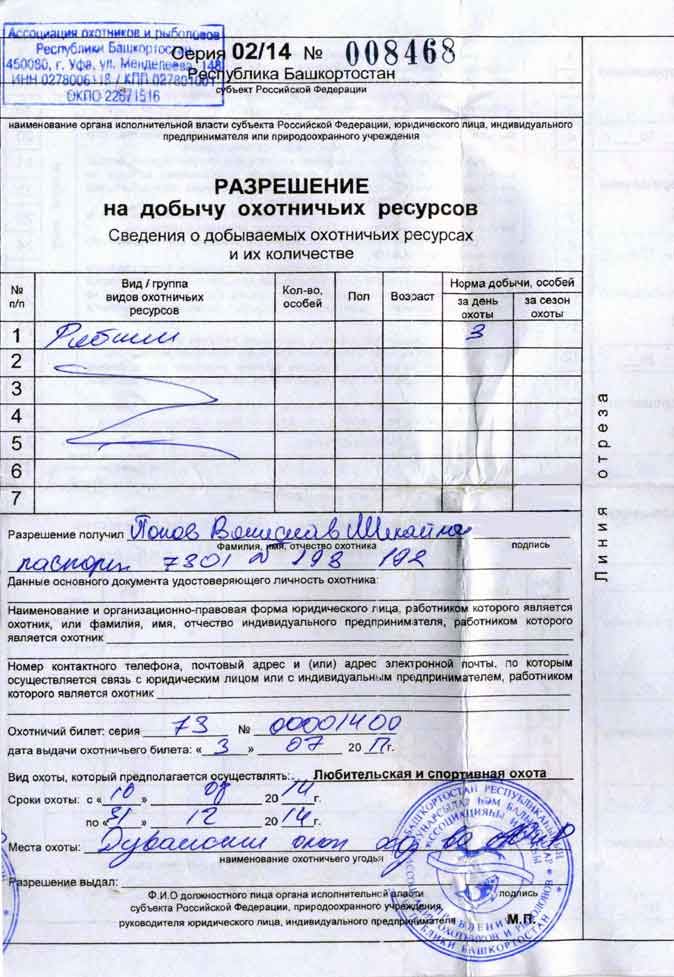 Ассоциация охотников и рыболовов
Республики Башкортостан
450080, г. Уфа, ул. Менделеева, 148
ИНН 0278006118 / КПП 027801001
ОКПО 22671516
Серия 02/14 № 008468
Республика Башкортостан
субъект Российской Федерации
наименование органа исполнительной власти субъекта Российской Федерации, юридического лица, индивидуального
предпринимателя или природоохранного учреждения
РАЗРЕШЕНИЕ
на добычу охотничьих ресурсов
Сведения о добываемых охотничьих ресурсах
и их количестве
№ п/п Вид / группа видов охотничьих ресурсов Кол-во, особей Пол Возраст Норма добычи, особей
за день охоты за сезон охоты
1 Рябчик 3
2
3
4
5
6
7
Разрешение получил Попов
Фамилия, имя, отчество охотника подпись
паспорт 7301 № 198 192
Данные основного документа удостоверяющего личность охотника:
Наименование и организационно-правовая форма юридического лица, работником которого является
охотник, или фамилия, имя, отчество индивидуального предпринимателя, работником которого
является охотник
Номер контактного телефона, почтовый адрес и (или) адрес электронной почты, по которым
осуществляется связь с юридическим лицом или с индивидуальным предпринимателем, работником
которого является охотник
Охотничий билет: серия 73 № 00001400
дата выдачи охотничьего билета: «3» 07 20 г.
Вид охоты, который предполагается осуществлять: Любительская и спортивная охота
Сроки охоты: с «10» 09 2014 г.
по «31» 12 2014 г.
Места охоты: Дуванский охот
наименование охотничьего угодья
Разрешение выдал:
Ф.И.О должностного лица органа исполнительной власти подпись
субъекта Российской Федерации, природоохранного учреждения,
руководителя юридического лица, индивидуального предпринимателя М.П.
Линия отреза